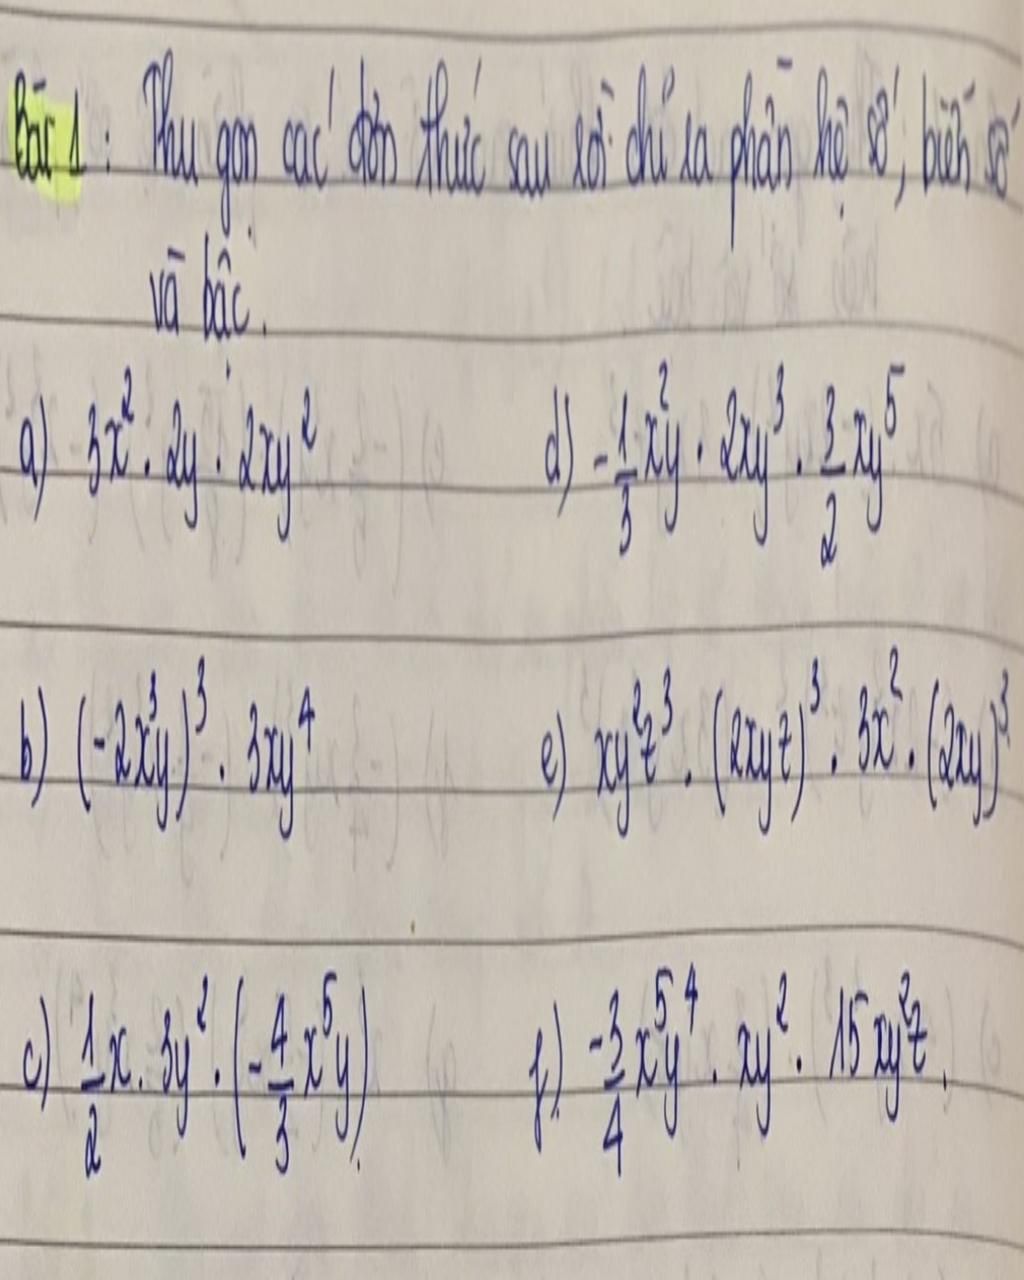 Bài 1: Thu gọn các đơn thức sau rồi chỉ ra phần hệ số, biến số
và bậc.
a) 3x². 2y . 2xy²
d) -1/3 x²y . 2xy³ . 3/2 xy⁵
b) (-2x³y)³ . 3xy⁴
e) xy²z³ . (2xyz)³ . 3x² . (2xy)³
c) 1/2 x . 3y² . (-4/3 x⁵y).
f) -3/4 x⁵y⁴ . xy² . 15xy²z.